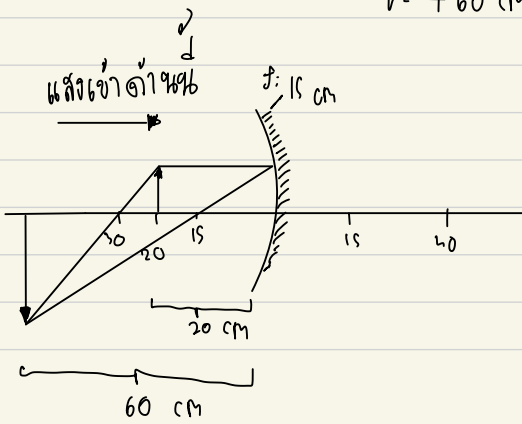 v = +60 cm
แสงเข้าด้านนี้
f: 15 cm
30 20 15 15 40
20 cm
60 cm